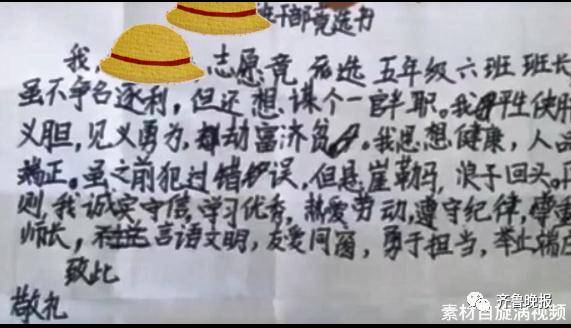 干部竞选书
我, 志愿竞选五年级六班班长
虽不争名逐利，但还想谋个一官半职。我平生侠肝
义胆，见义勇为，劫富济贫。我思想健康，人品
端正。虽之前犯过错误，但悬崖勒马，浪子回头。再
则我诚实守信，学习优秀，热爱劳动，遵守纪律，尊重
师长，言语文明，友爱同窗，勇于担当，举止端庄
致此
敬礼
齐鲁晚报
素材自旋涡视频